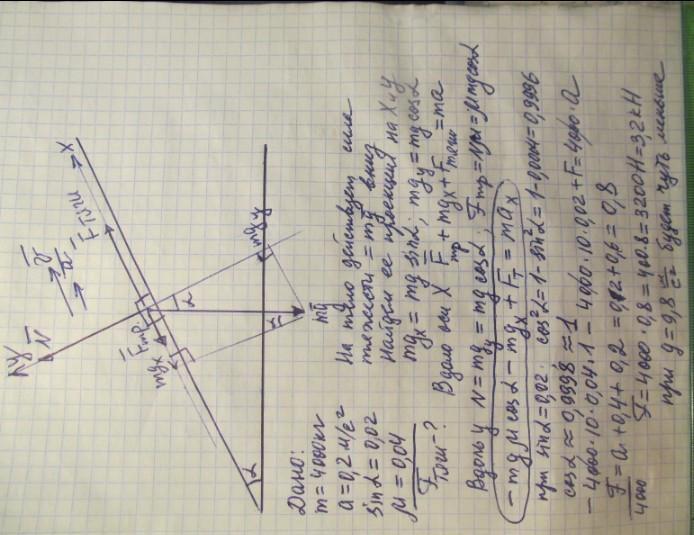 y
N
v
a
X
F тяги
Fтр
mgx
α
α
mgy
mg
α
Дано:
m = 4000кг
a = 0,2 м/с²
sinα = 0,02
μ = 0,04
Fтяги - ?
На тело действует сила
тяжести = mg вниз
найдем ее проекции на X и Y
mgx = mg sinα; mgy = mg cosα
Вдоль оси X Fтр + mgx + Fтяги = ma
Вдоль y N = mgy = mg cosα; Fтр = Nμ = μmg cosα
- mg μ cosα - mgx + Fт = max
при sinα = 0,02. cos²α = 1 - sin²α = 1 - 0,0004 = 0,9996
cosα ≈ 0,9998 ≈ 1
- 4000·10·0,04·1 - 4000·10·0,02 + F = 4000·a
F/4000 = a + 0,4 + 0,2 = 0,2 + 0,6 = 0,8
F = 4000·0,8 = 400·8 = 3200Н = 3,2кН
при g = 9,8 м/с² будет чуть меньше